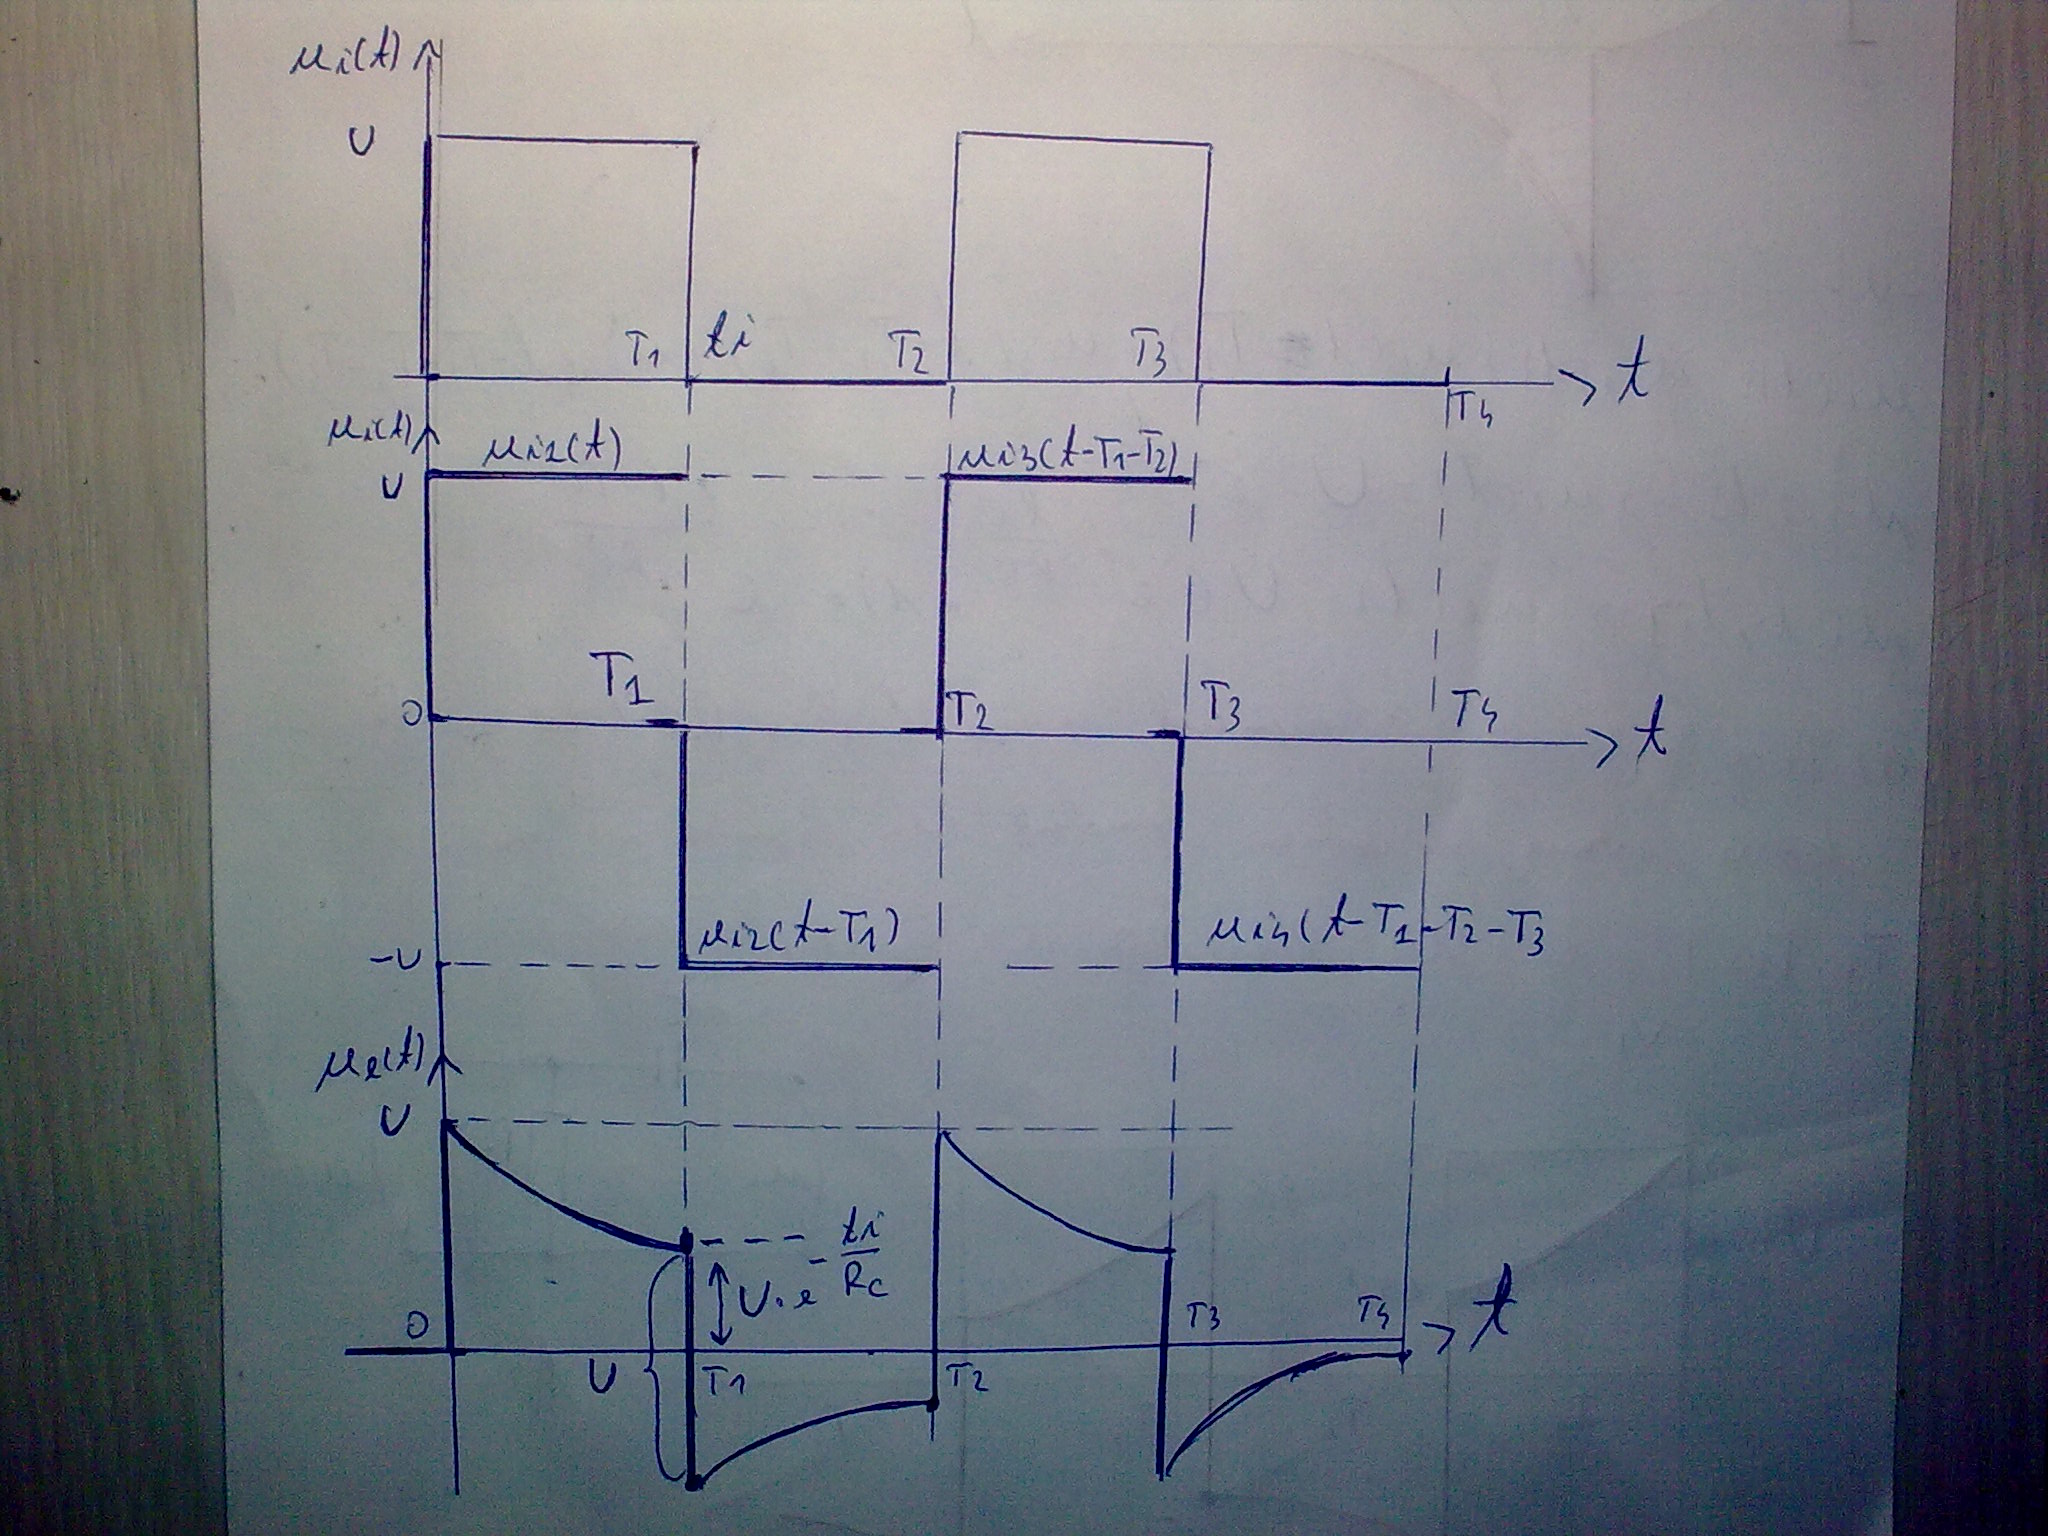 ui(t)
U
T1 ti T2 T3
t
T4
ui(t)
ui1(t) ui3(t-T1-T2)
U
T1
0 T2 T3 T4
t
ui2(t-T1) ui4(t-T1-T2-T3
-U
ue(t)
U
U·e - ti/RC
0 T3 T4 t
U T1 T2